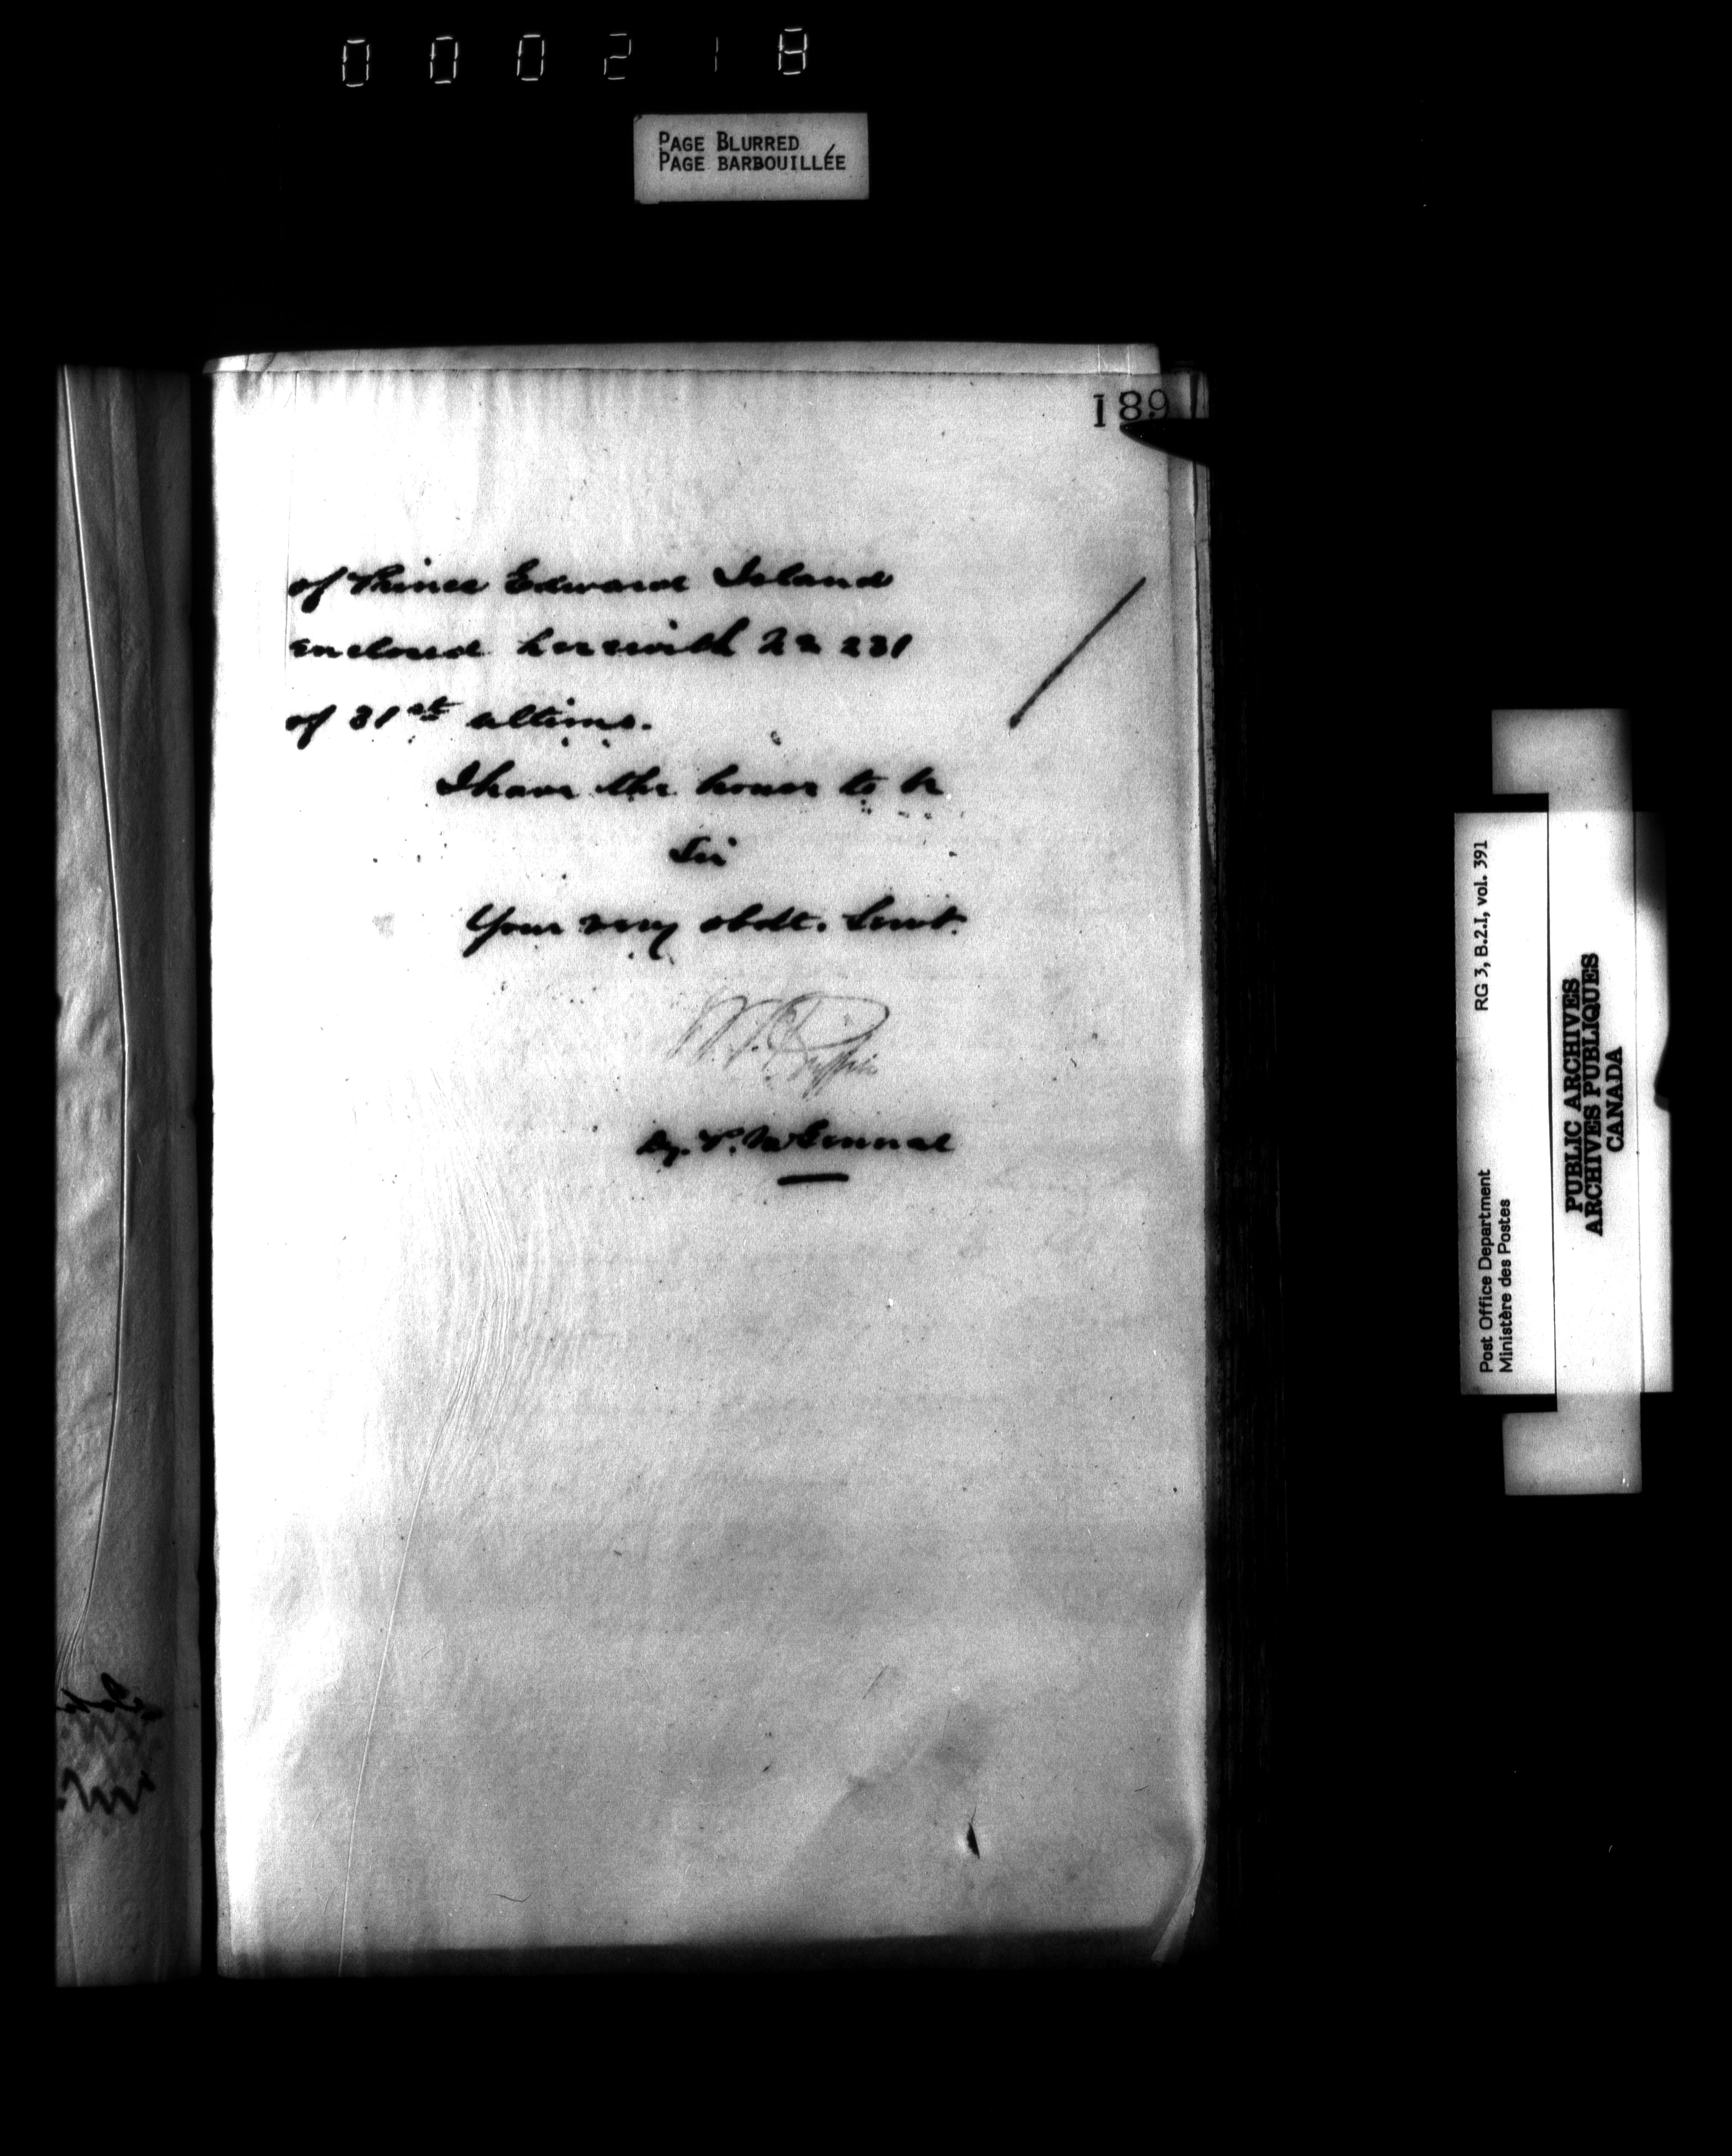 000218
PAGE BLURRED
PAGE BARBOUILLÉE
189
of Prince Edward Island
enclosed herewith 231
of 31st ultimo.
I have the honor to be
Sir
Your very obdt. Servt.
W. D.
Dy. P. M. General
RG 3, B.2.I, vol. 391
Post Office Department
Ministère des Postes
PUBLIC ARCHIVES
ARCHIVES PUBLIQUES
CANADA